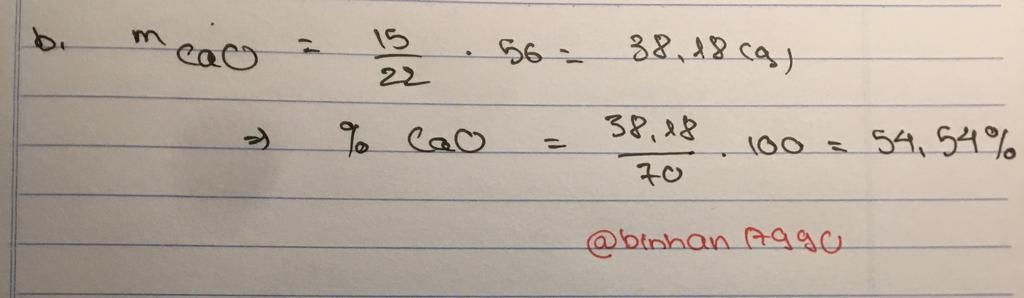 b. mCaO = 15/22 . 56 = 38,18 (g)
=> % CaO = 38,18/70 . 100 = 54,54%
@binhan17990